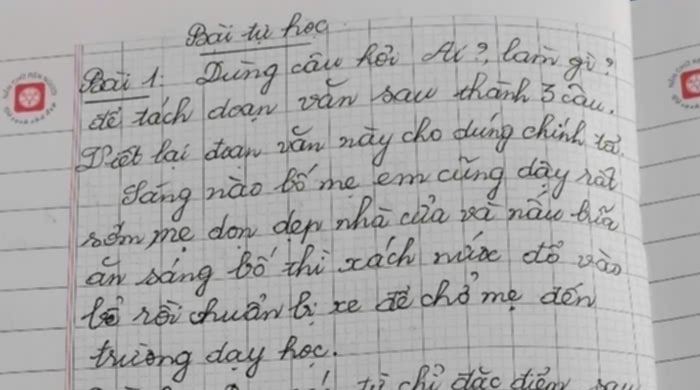 Bài tự học
Bài 1: Dùng câu hỏi Ai?, làm gì?
để tách đoạn văn sau thành 3 câu.
Viết lại đoạn văn này cho đúng chính tả.
Sáng nào bố mẹ em cũng dậy rất
sớm mẹ dọn dẹp nhà cửa và nấu bữa
ăn sáng bố thì xách nước đổ vào
bể rồi chuẩn bị xe để chở mẹ đến
trường dạy học.
từ chỉ đặc điểm sau